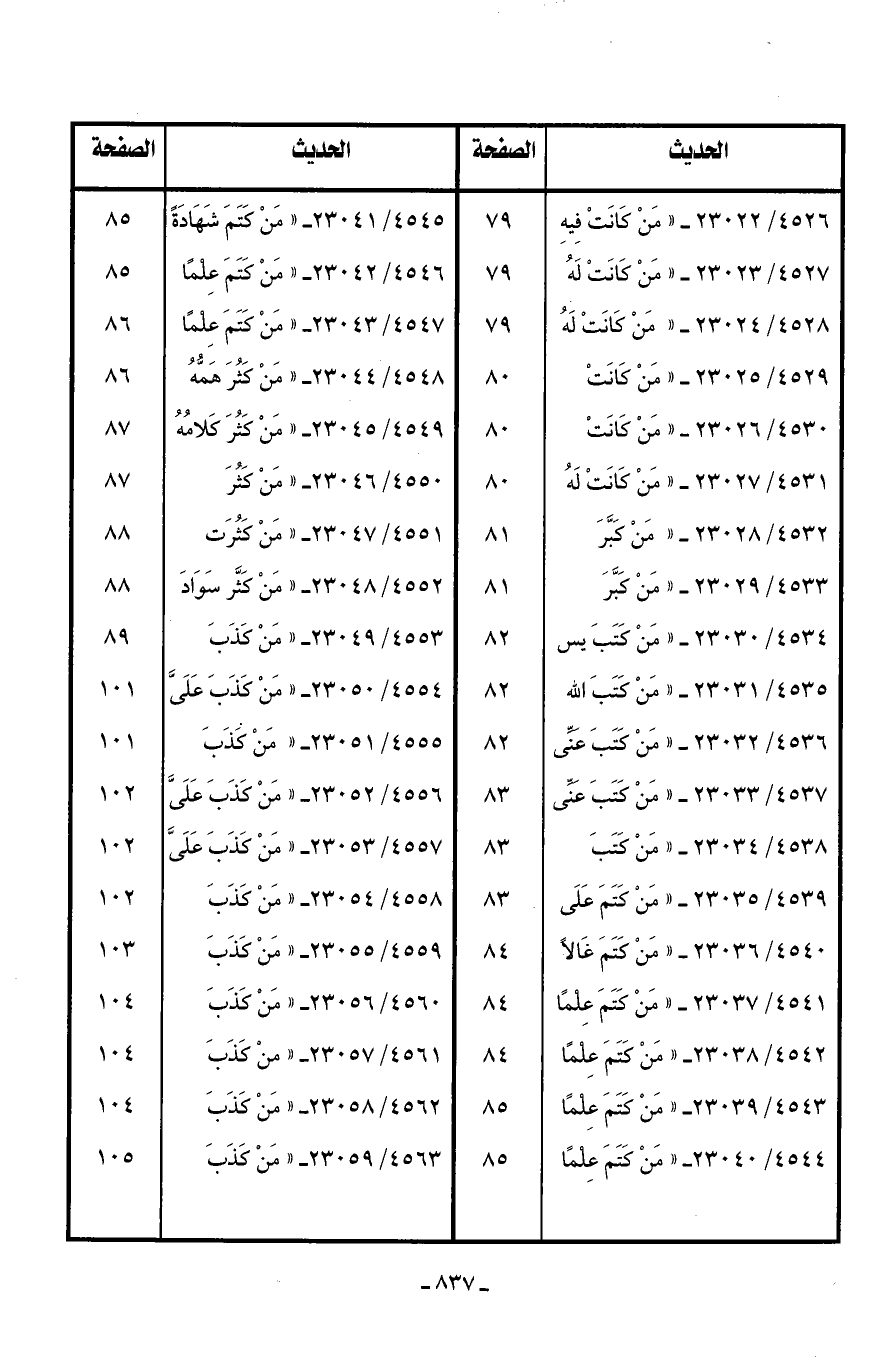 الحديث	الصفحة	الحديث	الصفحة
٤٥٢٦/ ٢٣٠٢٢ ـ « مَنْ كَانَتْ فِيهِ	٧٩	٤٥٤٥/ ٢٣٠٤١ـ « مَنْ كَتَمَ شَهَادَةً	٨٥
٤٥٢٧/ ٢٣٠٢٣ ـ « مَنْ كَانَتْ لَهُ	٧٩	٤٥٤٦/ ٢٣٠٤٢ـ « مَنْ كَتَمَ عِلْمًا	٨٥
٤٥٢٨/ ٢٣٠٢٤ ـ « مَنْ كَانَتْ لَهُ	٧٩	٤٥٤٧/ ٢٣٠٤٣ـ « مَنْ كَتَمَ عِلْمًا	٨٦
٤٥٢٩/ ٢٣٠٢٥ ـ « مَنْ كَانَتْ	٨٠	٤٥٤٨/ ٢٣٠٤٤ـ « مَنْ كَثُرَ هَمُّهُ	٨٦
٤٥٣٠/ ٢٣٠٢٦ ـ « مَنْ كَانَتْ	٨٠	٤٥٤٩/ ٢٣٠٤٥ـ « مَنْ كَثُرَ كَلامُهُ	٨٧
٤٥٣١/ ٢٣٠٢٧ ـ « مَنْ كَانَتْ لَهُ	٨٠	٤٥٥٠/ ٢٣٠٤٦ـ « مَنْ كَثُرَ	٨٧
٤٥٣٢/ ٢٣٠٢٨ ـ « مَنْ كَبَّرَ	٨١	٤٥٥١/ ٢٣٠٤٧ـ « مَنْ كَثُرَت	٨٨
٤٥٣٣/ ٢٣٠٢٩ ـ « مَنْ كَبَّرَ	٨١	٤٥٥٢/ ٢٣٠٤٨ـ « مَنْ كَثَّر سَوَادَ	٨٨
٤٥٣٤/ ٢٣٠٣٠ ـ « مَنْ كَتَبَ يس	٨٢	٤٥٥٣/ ٢٣٠٤٩ـ « مَنْ كَذَبَ	٨٩
٤٥٣٥/ ٢٣٠٣١ ـ « مَنْ كَتَبَ الله	٨٢	٤٥٥٤/ ٢٣٠٥٠ـ « مَنْ كَذَبَ عَلَىَّ	١٠١
٤٥٣٦/ ٢٣٠٣٢ ـ « مَنْ كَتَبَ عَنِّى	٨٢	٤٥٥٥/ ٢٣٠٥١ـ « مَنْ كَذَبَ	١٠١
٤٥٣٧/ ٢٣٠٣٣ ـ « مَنْ كَتَبَ عَنِّى	٨٣	٤٥٥٦/ ٢٣٠٥٢ـ « مَنْ كَذَبَ عَلَىَّ	١٠٢
٤٥٣٨/ ٢٣٠٣٤ ـ « مَنْ كَتَبَ	٨٣	٤٥٥٧/ ٢٣٠٥٣ـ « مَنْ كَذَبَ عَلَىَّ	١٠٢
٤٥٣٩/ ٢٣٠٣٥ ـ « مَنْ كَتَمَ عَلَى	٨٣	٤٥٥٨/ ٢٣٠٥٤ـ « مَنْ كَذَبَ	١٠٢
٤٥٤٠/ ٢٣٠٣٦ ـ « مَنْ كَتَمَ غَالاً	٨٤	٤٥٥٩/ ٢٣٠٥٥ـ « مَنْ كَذَبَ	١٠٣
٤٥٤١/ ٢٣٠٣٧ ـ « مَنْ كَتَمَ عِلْمًا	٨٤	٤٥٦٠/ ٢٣٠٥٦ـ « مَنْ كَذَبَ	١٠٤
٤٥٤٢/ ٢٣٠٣٨ـ « مَنْ كَتَمَ عِلْمًا	٨٤	٤٥٦١/ ٢٣٠٥٧ـ « من كَذَبَ	١٠٤
٤٥٤٣/ ٢٣٠٣٩ـ « مَنْ كَتَمَ عِلْمًا	٨٥	٤٥٦٢/ ٢٣٠٥٨ـ « مَنْ كَذَبَ	١٠٤
٤٥٤٤/ ٢٣٠٤٠ـ « مَنْ كَتَمَ عِلْمًا	٨٥	٤٥٦٣/ ٢٣٠٥٩ـ « مَنْ كَذَبَ	١٠٥
ـ ٨٣٧ ـ